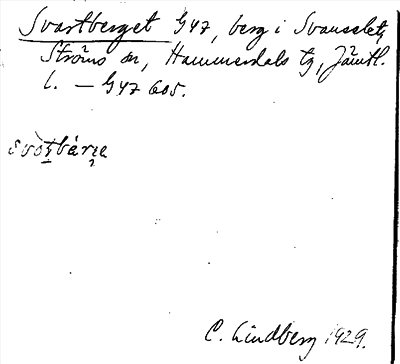 Svartberget G47, berg i Svansslet,
Ströms sn, Hammerdals tg, Jämtl.
l. — G47 605.
svòtbárɛ
C. Lindberg 1929.